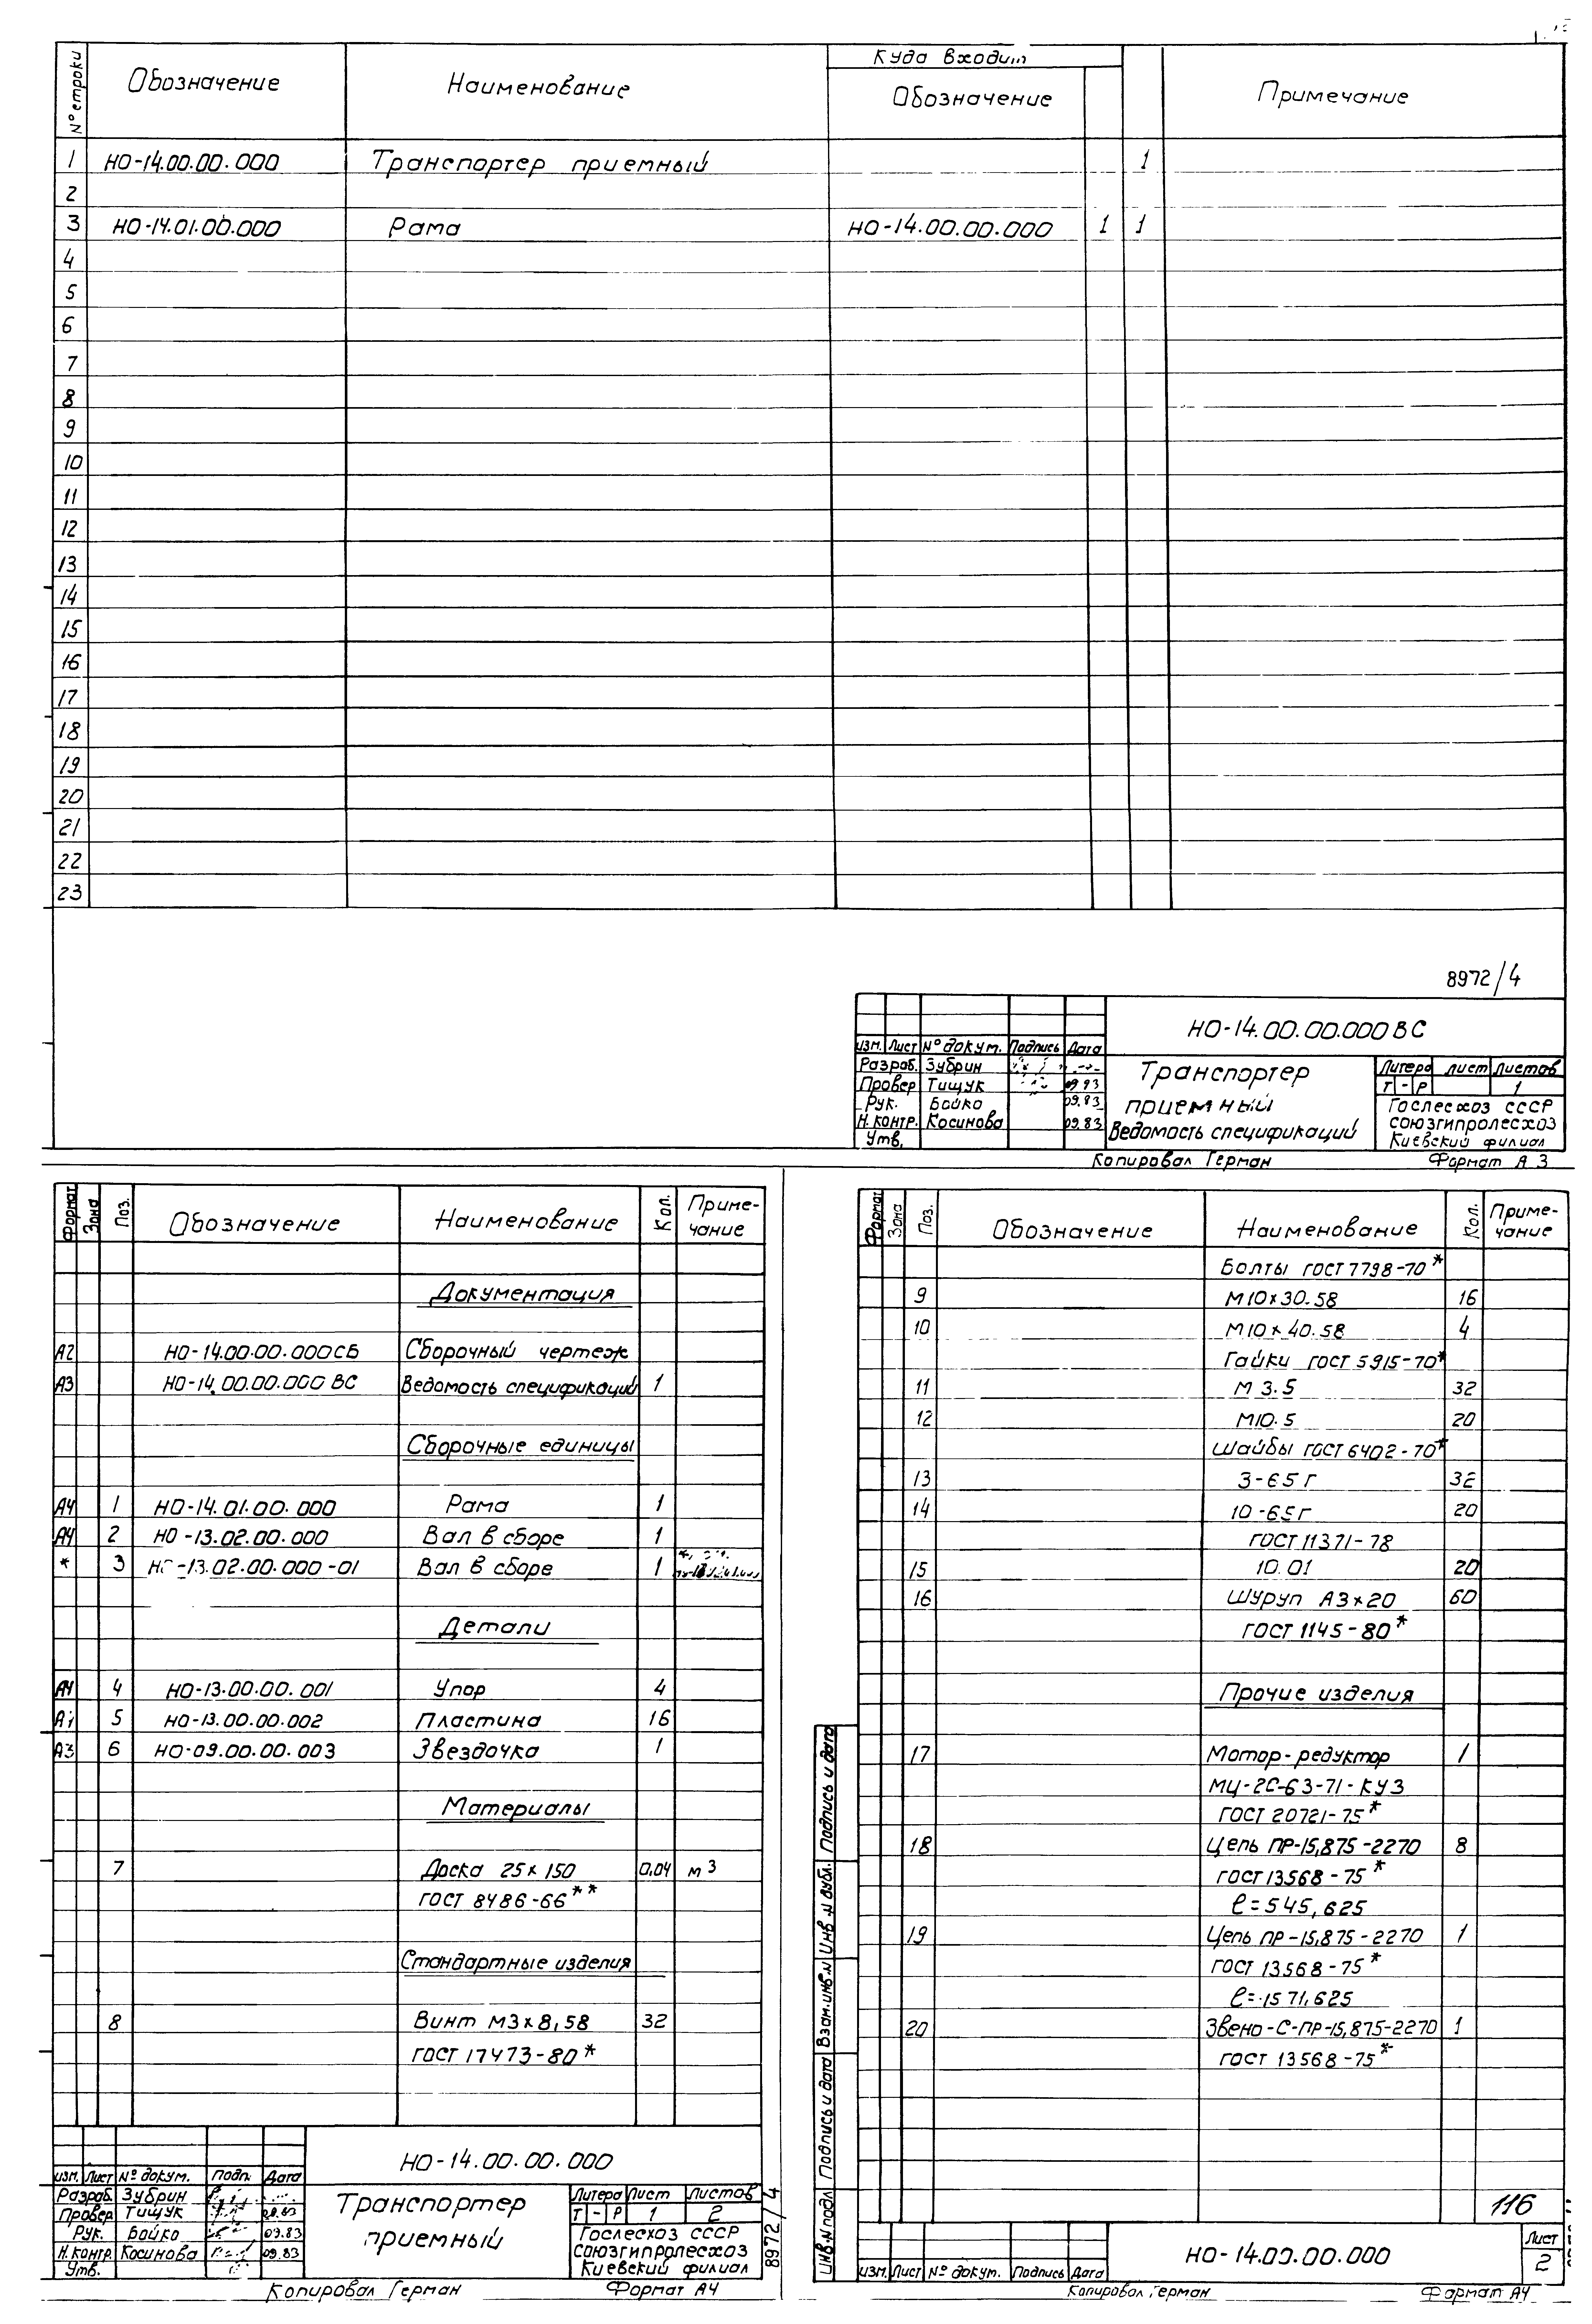 № строки Обозначение Наименование Куда входит Обозначение Примечание
1 НО-14.00.00.000 Транспортер приемный 1
2
3 НО-14.01.00.000 Рама НО-14.00.00.000 1 1
4
5
6
7
8
9
10
11
12
13
14
15
16
17
18
19
20
21
22
23
8972/4
НО-14.00.00.000 ВС
Изм. Лист № докум. Подпись Дата
Разраб. Зубрин
Провер Тищук 09.83
Рук. Бойко 09.83
Н. контр. Косинова 09.83
Утв.
Транспортер
приемный
Ведомость спецификаций
Литера Лист Листов
Т - Р 1
Гослесхоз СССР
Союзгипролесхоз
Киевский филиал
Копировал Герман Формат А3
Формат Зона Поз. Обозначение Наименование Кол. Приме-
чание
Документация
А2 НО-14.00.00.000СБ Сборочный чертеж
А3 НО-14.00.00.000 ВС Ведомость спецификаций 1
Сборочные единицы
А4 1 НО-14.01.00.000 Рама 1
А4 2 НО-13.02.00.000 Вал в сборе 1
* 3 НО-13.02.00.000-01 Вал в сборе 1
Детали
А4 4 НО-13.00.00.001 Упор 4
А4 5 НО-13.00.00.002 Пластина 16
А3 6 НО-09.00.00.003 Звездочка 1
Материалы
7 Доска 25×150 0,04 м3
ГОСТ 8486-66**
Стандартные изделия
8 Винт М3×8,58 32
ГОСТ 17473-80*
НО-14.00.00.000
Изм. Лист № докум. Подп. Дата
Разраб. Зубрин
Провер Тищук 09.83
Рук. Бойко 09.83
Н. контр. Косинова 09.83
Утв.
Транспортер
приемный
Литера Лист Листов
Т - Р 1 2
Гослесхоз СССР
Союзгипролесхоз
Киевский филиал
8972/4
Копировал Герман Формат А4
Формат Зона Поз. Обозначение Наименование Кол. Приме-
чание
Болты ГОСТ 7798-70*
9 М10×30.58 16
10 М10×40.58 4
Гайки ГОСТ 5915-70*
11 М3.5 32
12 М10.5 20
Шайбы ГОСТ 6402-70*
13 3-65Г 32
14 10-65Г 20
ГОСТ 11371-78
15 10.01 20
16 Шуруп А3×20 60
ГОСТ 1145-80*
Прочие изделия
17 Мотор-редуктор 1
МЦ-2С-63-71-КУ3
ГОСТ 20721-75*
18 Цепь ПР-15,875-2270 8
ГОСТ 13568-75*
ℓ=545,625
19 Цепь ПР-15,875-2270 1
ГОСТ 13568-75*
ℓ=1571,625
20 Звено-С-ПР-15,875-2270 1
ГОСТ 13568-75*
Инв. № подл. Подпись и дата Взам. инв. № Инв. № дубл. Подпись и дата
116
Изм. Лист № докум. Подпись Дата
НО-14.00.00.000
Лист
2
Копировал Герман Формат А4